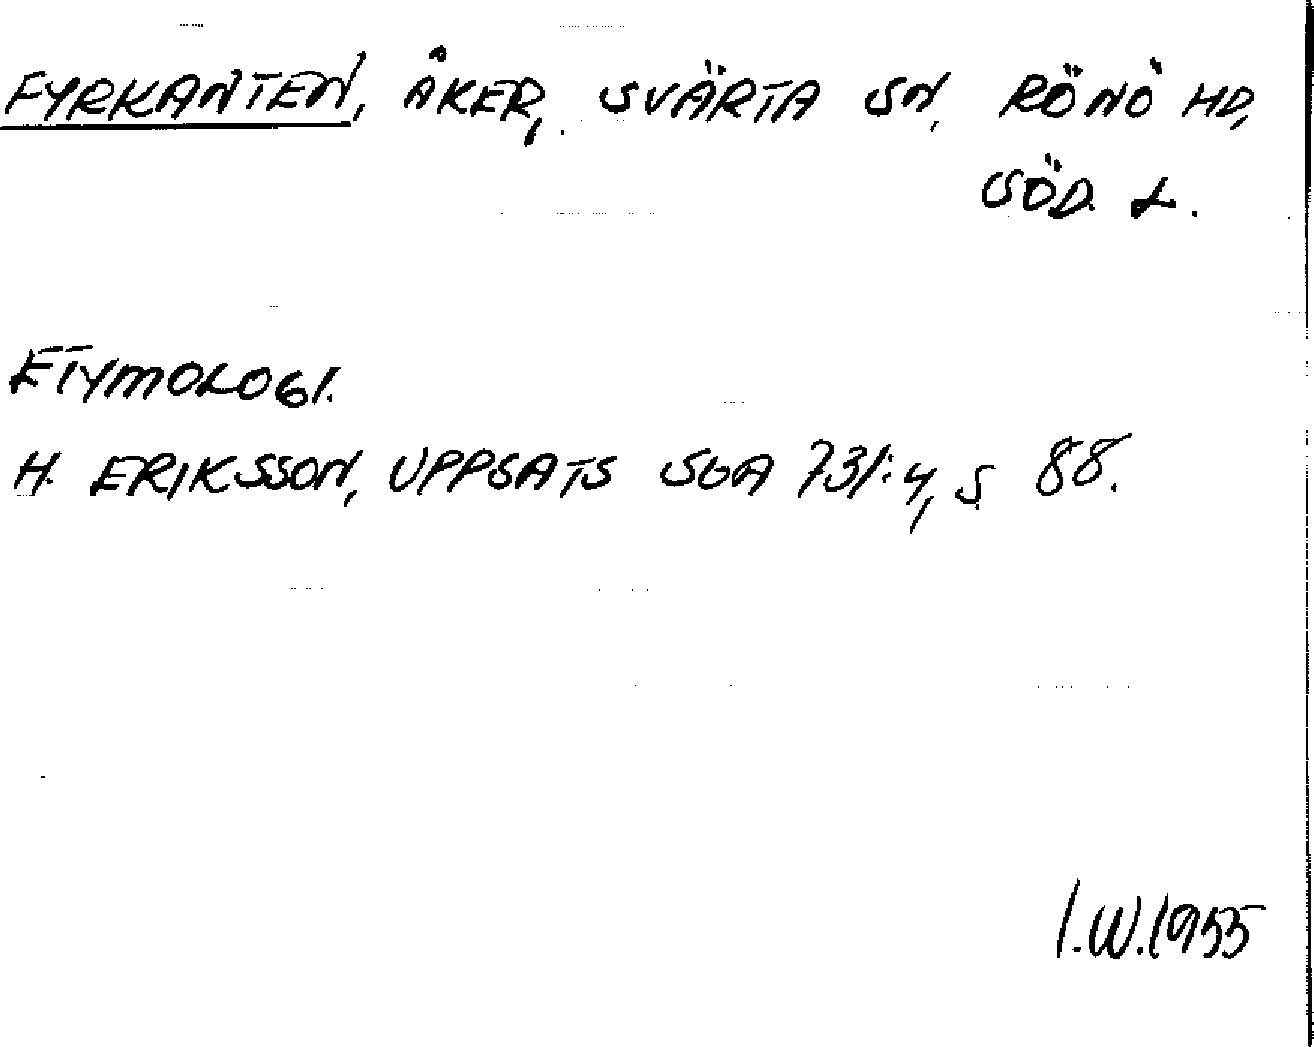 FYRKANTEN, ÅKER, SVÄRTA SN, RÖNÖ HD,
SÖD. L.
ETYMOLOGI.
H. ERIKSSON, UPPSATS SOA 731:4, S 88.
I.W.1955